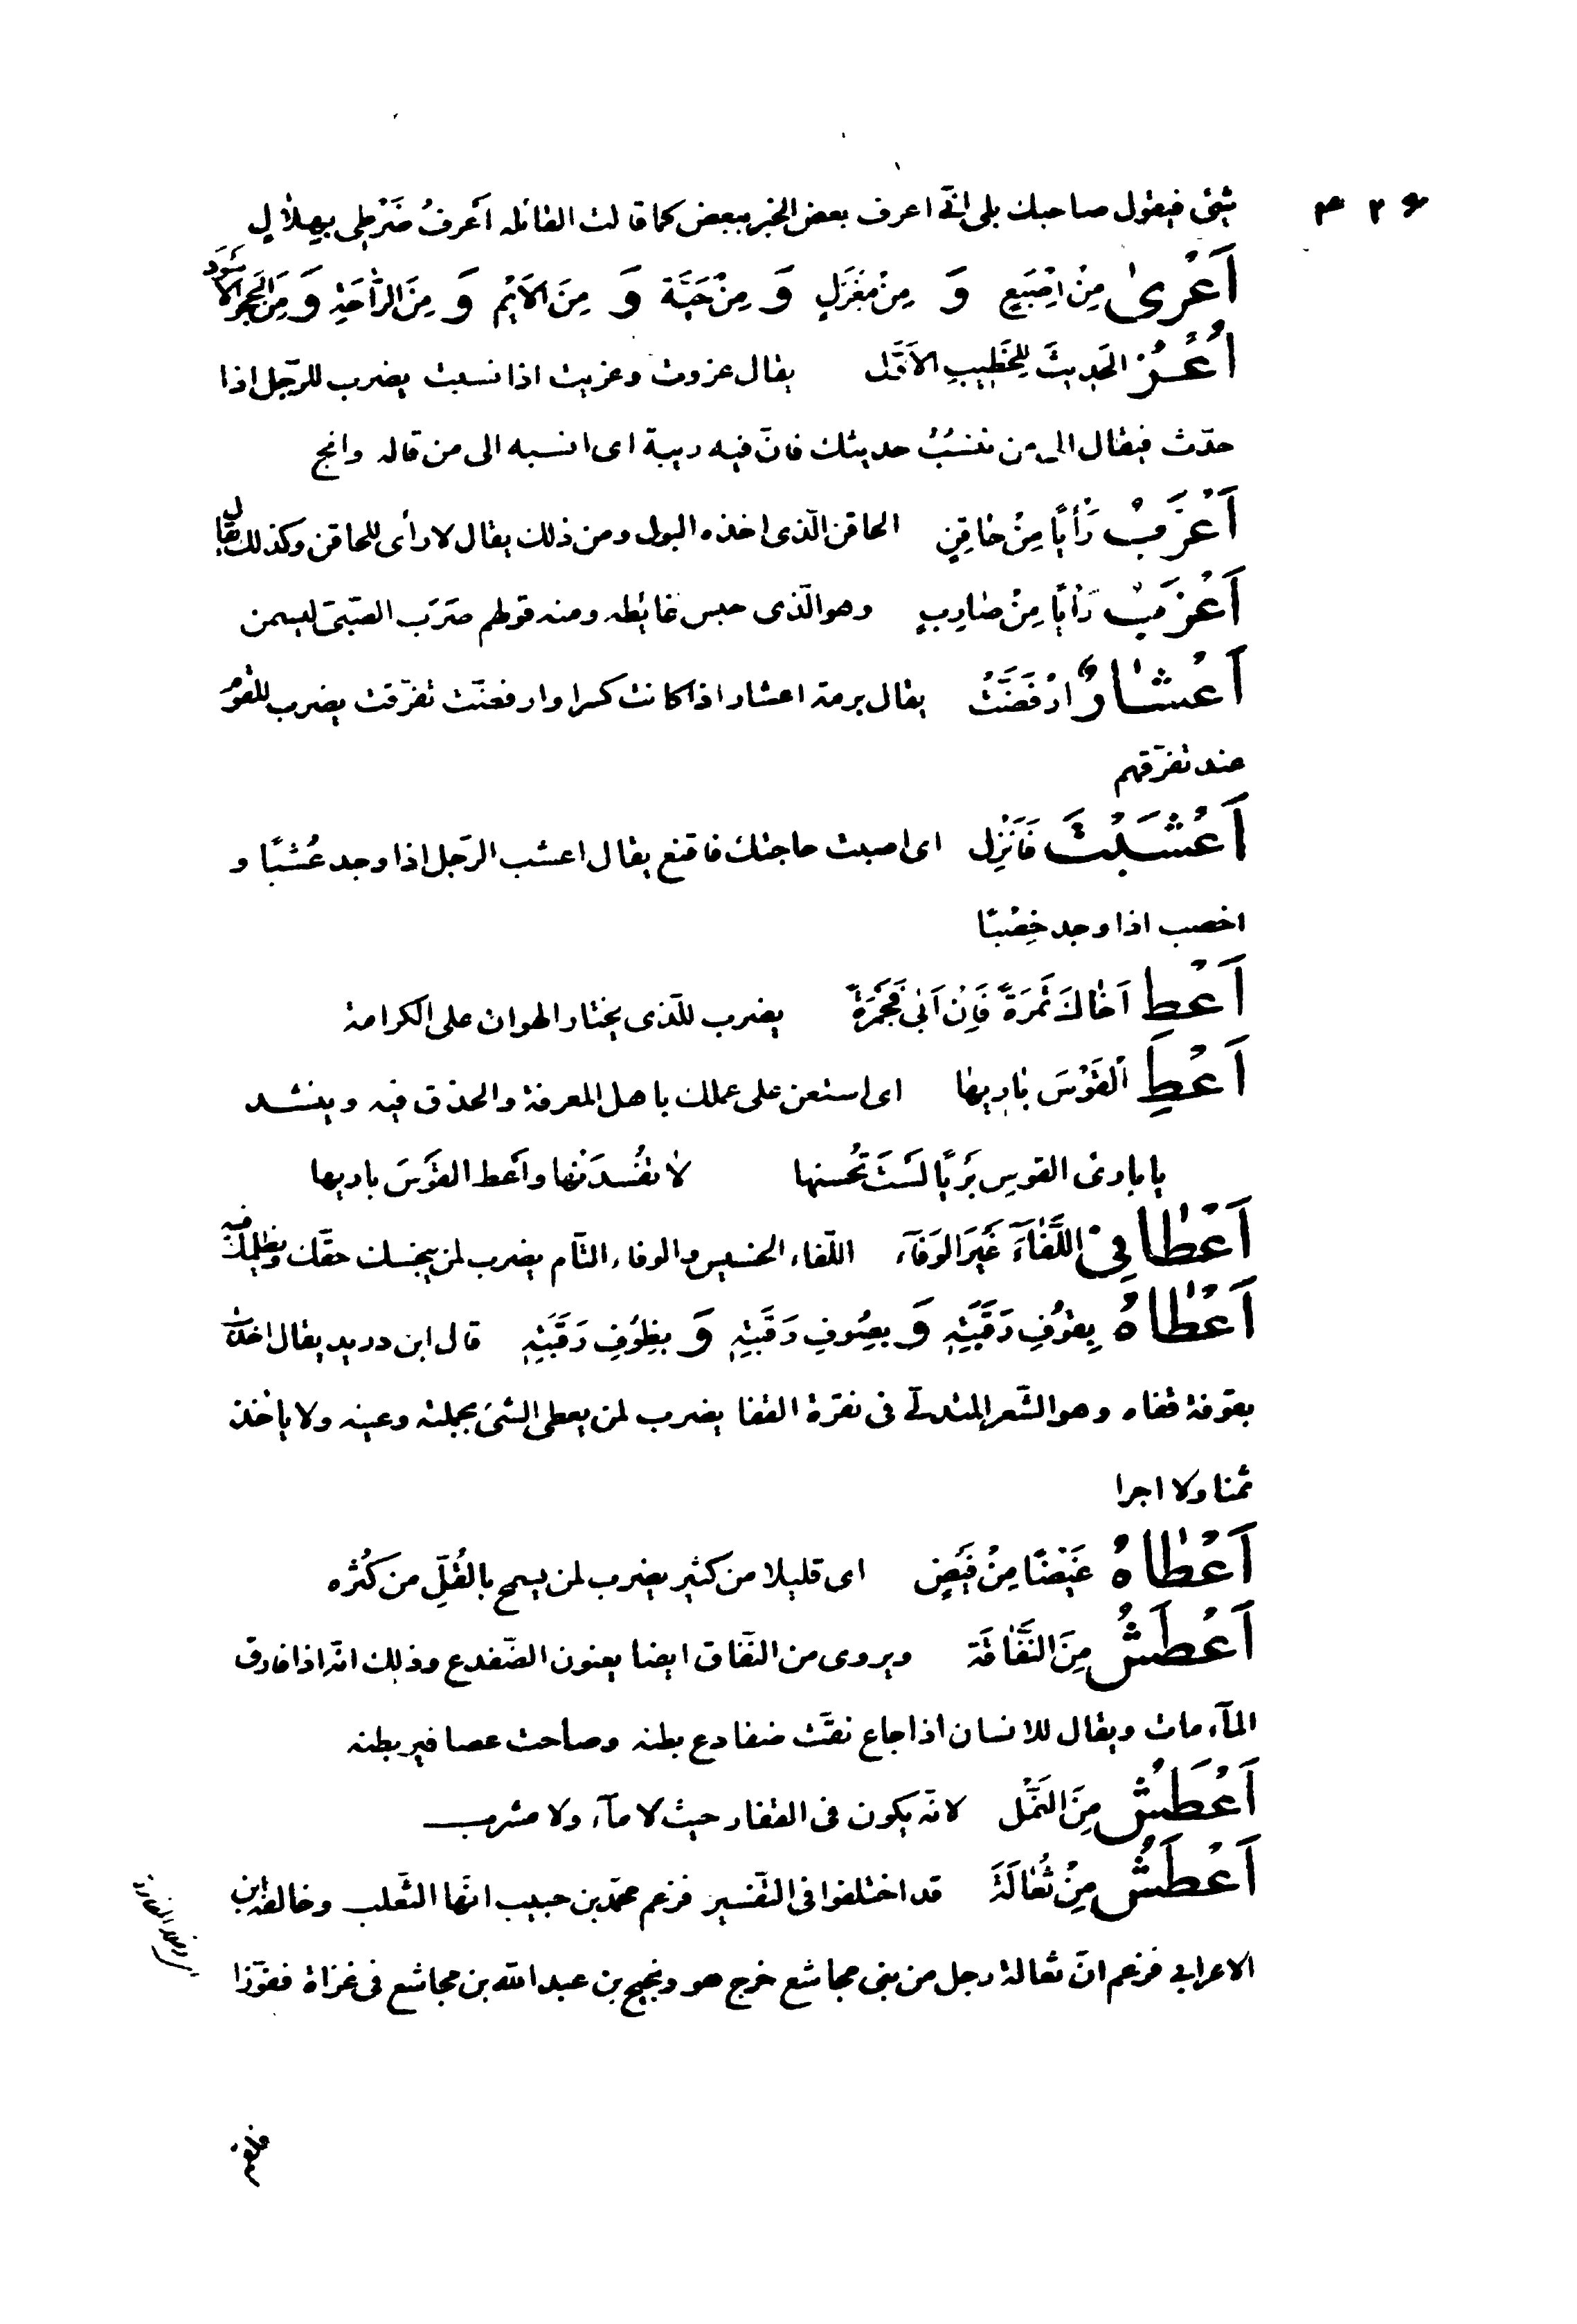 ٤٢٤
شئ فيقول صاحبك بلى انّى اعرف بعض الخبر ببعض كما قالت القائله اَعْرِفُ ضَرْطى بِهِلال
اَعْرىٰ مِنْ اِصْبَعٍ وَ مِنْ مِغْزَلٍ وَ مِنْ حَيَّة وَ مِنَ الاَيْم وَ مِنَ الرّٰاحَةِ وَ مِنَ الحَجَرِ الاَسْوَد
اُعْزُ الحَديثَ لِلخَطِيبِ الاَوَّل يقال عزوت وعزيت اذا نسبت يضرب للرّجل اذا
حدّث فيقال الى من تنسُبُ حديثك فانّ فيه ريبة اى انسبه الى من قاله وانج
اَعْزَبُ رَأْيًا مِنْ حٰاقِنٍ الحاقن الّذى اخذه البول ومن ذلك يقال لا رأى للحاقن وكذلك يقال
اَعْزَبُ رَأْيًا مِنْ صٰارِبٍ وهو الّذى حبس غائطه ومنه قولهم صَرَبَ الصّبىّ ليسمن
اَعْشٰارٌ ارْفَضَّتْ يقال برمة اعشار اذا كانت كسرا وارفضّت تفرّقت يضرب للقوم
عند تفرّقهم
اَعْشَبْتَ فَانْزِل اى اصبت حاجتك فاقنع يقال اعشب الرّجل اذا وجد عُشْبًا و
اخصب اذا وجد خِصْبًا
اَعْطِ اَخٰاكَ تَمْرَةً فَاِنْ اَبىٰ فَجَمْرَةً يضرب للّذى يختار الهوان على الكرامة
اَعْطِ القَوْسَ بٰارِيهٰا اى استعن على عملك باهل المعرفة والحذق فيه وينشد
يا بارئ القوسِ بَرْيًا لَسْتَ تُحْسنها لاٰ تفْسُدَنْها واَعط القَوْسَ باريها
اَعْطٰانِى اللَّفٰآءَ غَيْرَ الوَفٰآء اللّفاء الخسيس والوفاء التّام يضرب لمن يبخسك حقّك ويظلمك فيه
اَعْطٰاهُ بِقُوْفِ رَقَبَتِهِ وَ بِصُوفِ رَقَبَتِهِ وَ بِظُوْفِ رَقَبَتِهِ قال ابن دريد يقال اخذته
بقوفة قفاه وهو الشّعر المتدلّى فى نقرة القفا يضرب لمن يعطى الشئ بجملته وعينه ولا يأخذ
ثمنا ولا اجرا
اَعْطٰاهُ غَيْضًا مِنْ فَيْضٍ اى قليلا من كثير يضرب لمن يسمح بالقُلِّ من كُثْره
اَعْطَشُ مِنَ النَّقّٰاقَة ويروى من النّقّاق ايضا يعنون الضّفدع وذلك انّه اذا فارق
المآء مات ويقال للانسان اذا جاع نقّت ضفادع بطنه وصاحت عصافير بطنه
اَعْطَشُ مِنَ النَّمْل لانّه يكون فى القفار حيث لا مآء ولا مشرب
اَعْطَشُ مِنْ ثُعٰالَةَ قد اختلفوا فى التّفسير فزعم محمّد بن حبيب انّها الثّعلب وخالفه ابن
الاعرابى فزعم انّ ثعالة رجل من بنى مجاشع خرج هو ونجيح بن عبد الله بن مجاشع فى غزاة ففوّزا